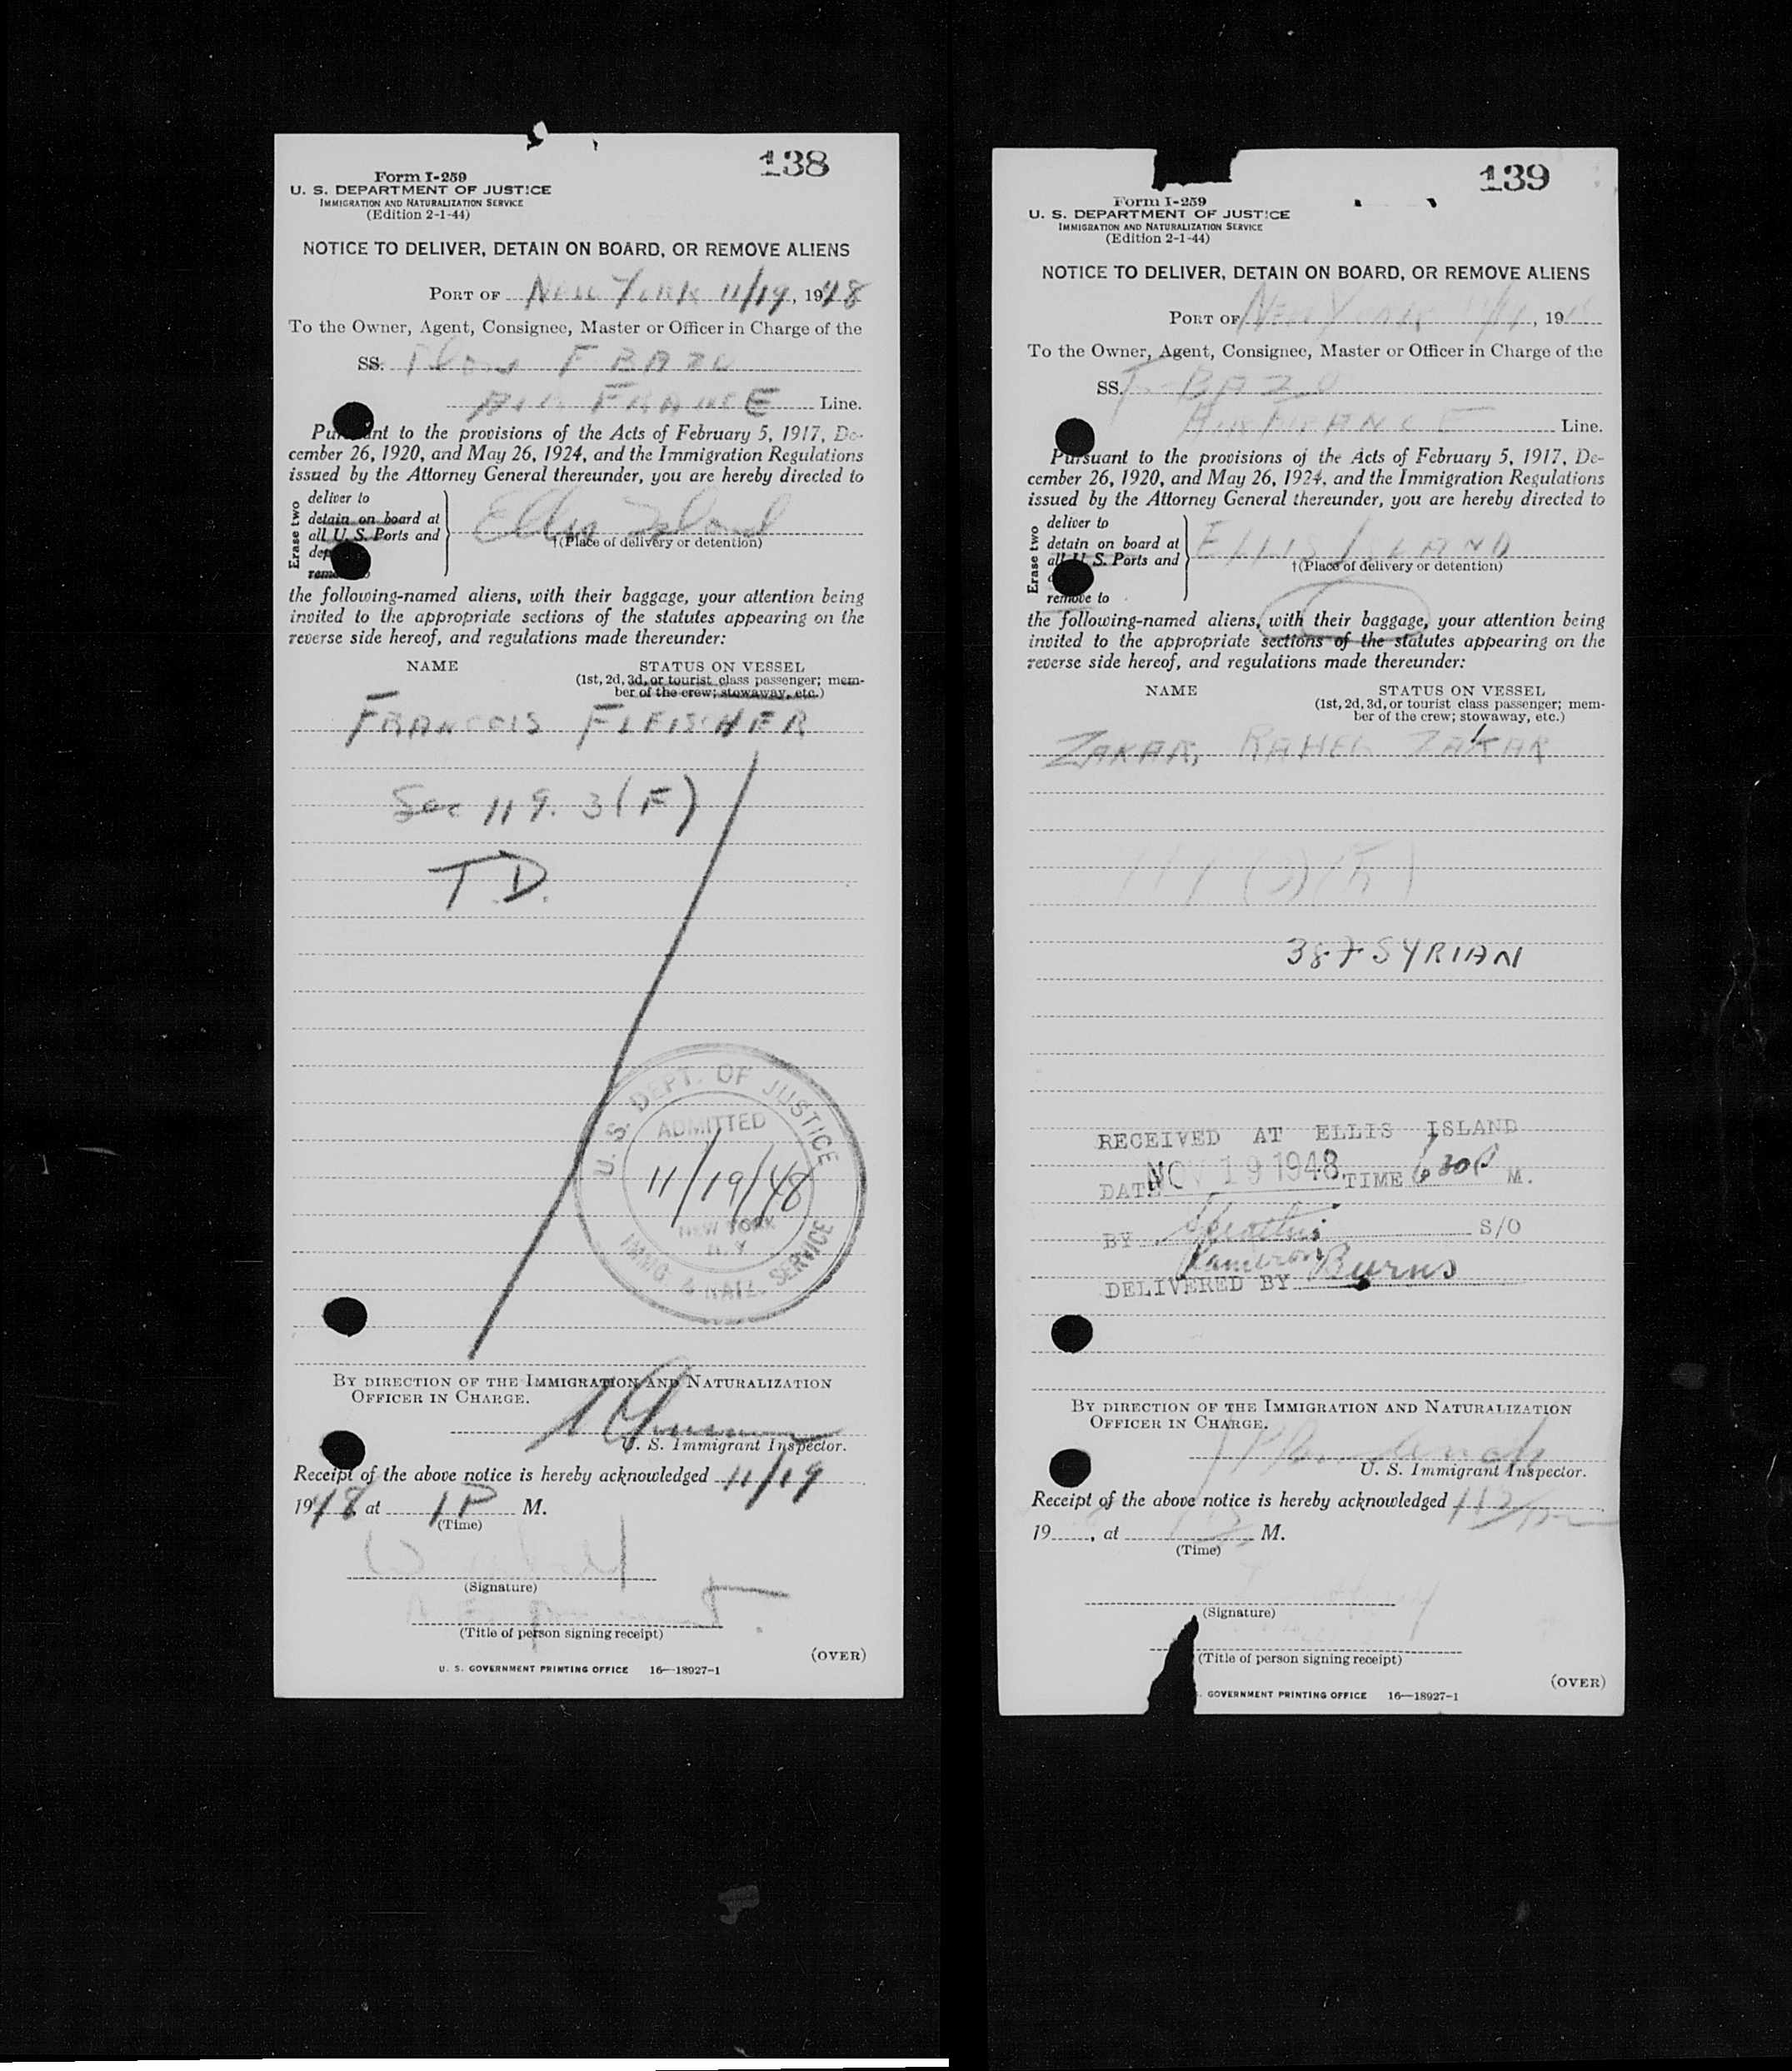 138
Form I-259
U. S. DEPARTMENT OF JUSTICE
IMMIGRATION AND NATURALIZATION SERVICE
(Edition 2-1-44)
NOTICE TO DELIVER, DETAIN ON BOARD, OR REMOVE ALIENS
PORT OF New York 11/19, 1948
To the Owner, Agent, Consignee, Master or Officer in Charge of the
SS. F BAZO
AIR FRANCE Line.
Pursuant to the provisions of the Acts of February 5, 1917, De-
cember 26, 1920, and May 26, 1924, and the Immigration Regulations
issued by the Attorney General thereunder, you are hereby directed to
Erase two
deliver to
detain on board at
all U. S. Ports and
remove to
Ellis Island
†(Place of delivery or detention)
the following-named aliens, with their baggage, your attention being
invited to the appropriate sections of the statutes appearing on the
reverse side hereof, and regulations made thereunder:
NAME STATUS ON VESSEL
(1st, 2d, 3d, or tourist class passenger; mem-
ber of the crew; stowaway, etc.)
FRANCOIS FLEISCHER
Sec 119. 3 (F)
T.D.
U. S. DEPT. OF JUSTICE
ADMITTED
11/19/48
NEW YORK
N. Y.
IMMIG & NATZ. SERVICE
BY DIRECTION OF THE IMMIGRATION AND NATURALIZATION
OFFICER IN CHARGE.
U. S. Immigrant Inspector.
Receipt of the above notice is hereby acknowledged 11/19
1948 at 1 P M.
(Time)
(Signature)
(Title of person signing receipt)
(OVER)
U. S. GOVERNMENT PRINTING OFFICE 16—18927-1
139
Form I-259
U. S. DEPARTMENT OF JUSTICE
IMMIGRATION AND NATURALIZATION SERVICE
(Edition 2-1-44)
NOTICE TO DELIVER, DETAIN ON BOARD, OR REMOVE ALIENS
PORT OF New York, 19
To the Owner, Agent, Consignee, Master or Officer in Charge of the
SS. F-BAZO
AIR FRANCE Line.
Pursuant to the provisions of the Acts of February 5, 1917, De-
cember 26, 1920, and May 26, 1924, and the Immigration Regulations
issued by the Attorney General thereunder, you are hereby directed to
Erase two
deliver to
detain on board at
all U. S. Ports and
remove to
ELLIS ISLAND
†(Place of delivery or detention)
the following-named aliens, with their baggage, your attention being
invited to the appropriate sections of the statutes appearing on the
reverse side hereof, and regulations made thereunder:
NAME STATUS ON VESSEL
(1st, 2d, 3d, or tourist class passenger; mem-
ber of the crew; stowaway, etc.)
ZAKAR, RAHEL ZAKAR
SYRIAN
RECEIVED AT ELLIS ISLAND
DATE NOV 19 1948 TIME 6 30 P M.
BY S/O
DELIVERED BY Burns
BY DIRECTION OF THE IMMIGRATION AND NATURALIZATION
OFFICER IN CHARGE.
U. S. Immigrant Inspector.
Receipt of the above notice is hereby acknowledged
19, at M.
(Time)
(Signature)
(Title of person signing receipt)
(OVER)
GOVERNMENT PRINTING OFFICE 16—18927-1